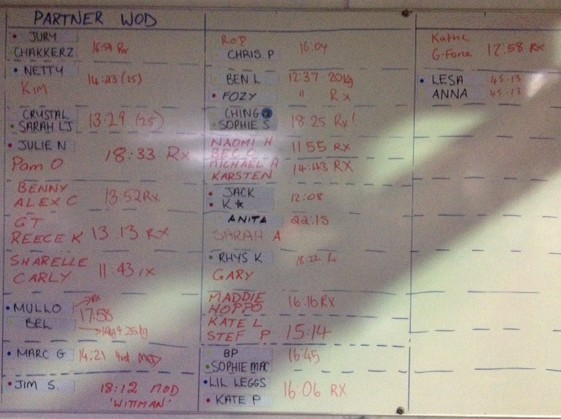 PARTNER WOD
JURY
CHAKKERZ
NETTY
KIM 14:23 (25)
CRYSTAL
SARAH LJ 13:29 (25)
JULIE N
Pam O 18:33 Rx
BENNY
ALEX C 13:52 RX
GT
REECE K 13.13 RX
SHARELLE
CARLY 11.43
MULLO
BEL 17:58
MARC G 14:21
JIM S. 18:12 MOD
'WITTMAN'
ROD
CHRIS P 16:04
BEN L 12:37 20kg
FOZY " Rx
CHING
SOPHIE S 18:25 Rx!
NAOMI H
BEC 11 55 RX
MICHAEL A
KARSTEN 14:43 RX
JACK
K★ 12:08
ANITA 22:15
SARAH A
RHYS K
GARY
MADDIE
HOPPO 16:16 RX
KATE L
STEF P 15:14
BP 16:45
SOPHIE MAC
LIL LEGGS
KATE P 16:06 RX
Kathe
G-Force 12:58 RX
LESA 45:13
ANNA 45:13